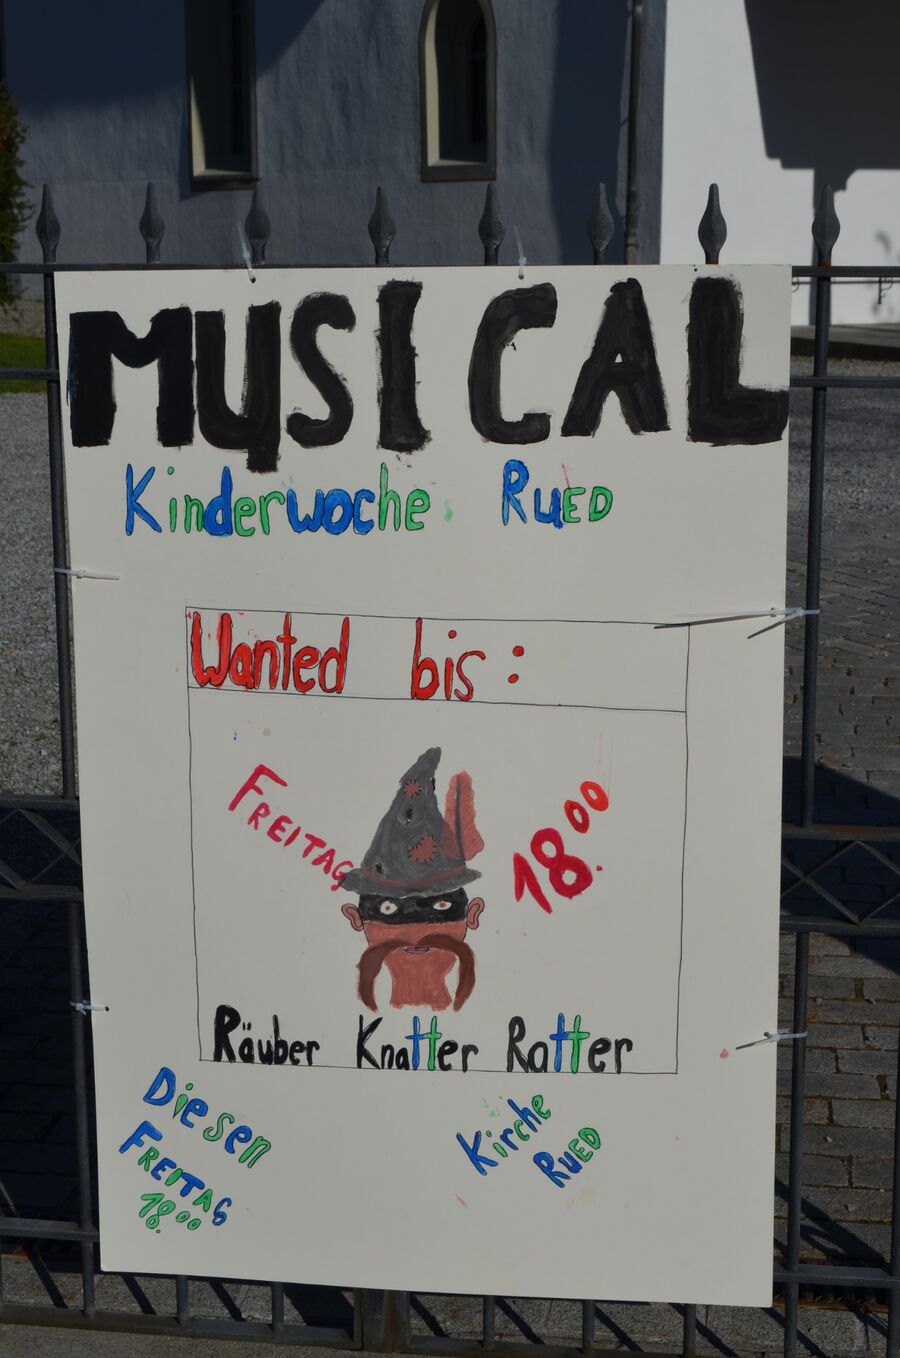 MUSICAL
Kinderwoche RUED
Wanted bis:
FREITAG 18.00
Räuber Knatter Ratter
Diesen
FREITAG
18.00
Kirche
RUED